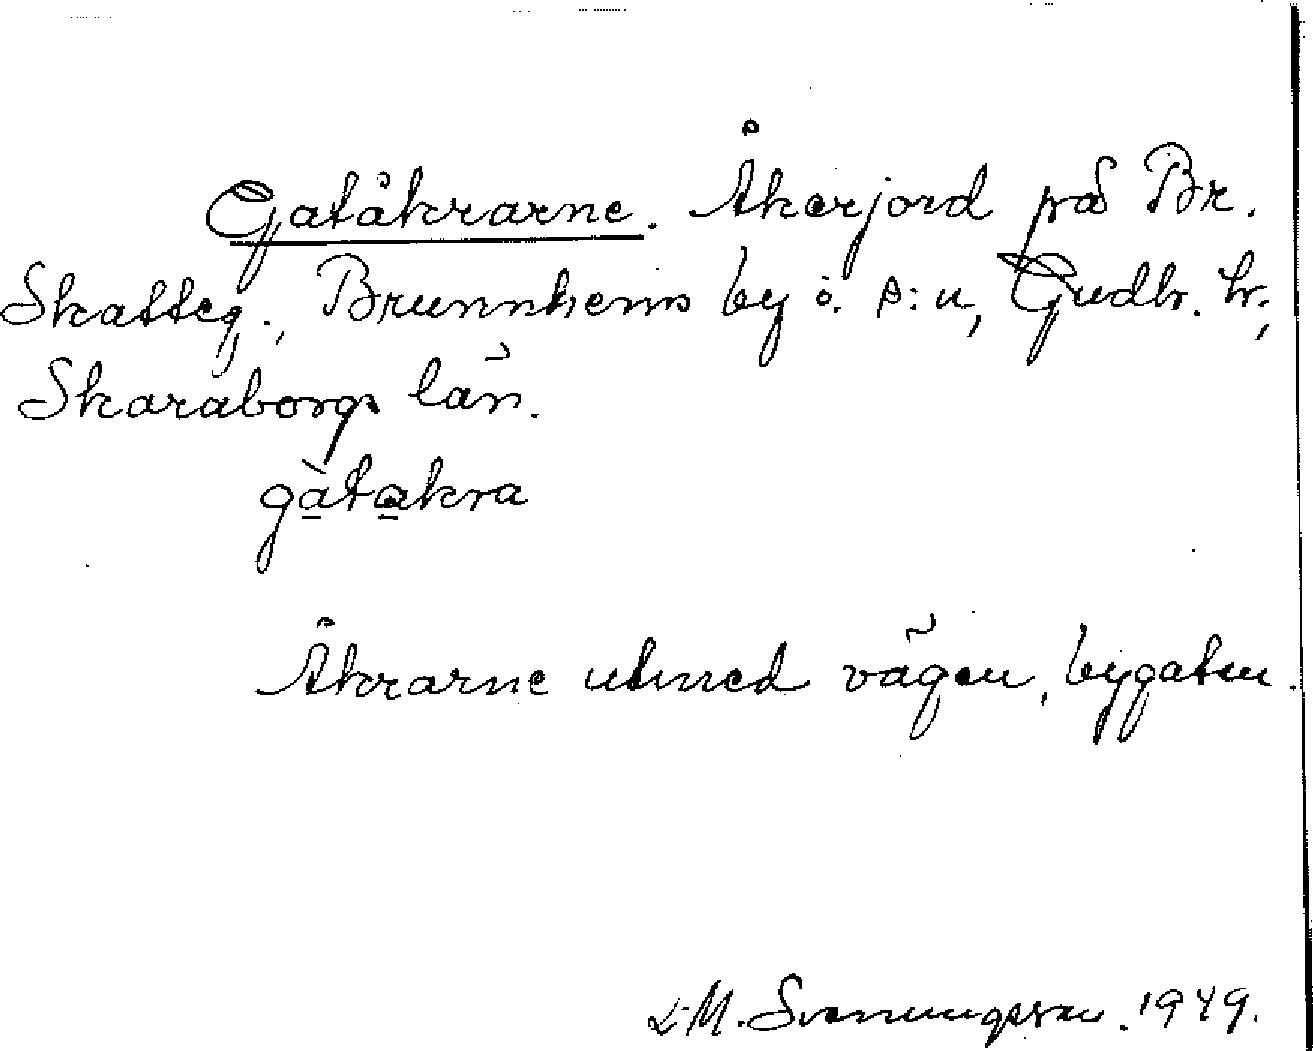 Gatåkrarne. Åkerjord på Br.
Skatteg., Brunnhems by o. s:n, Gudh. hr,
Skaraborgs län.
gàtakra
Åkrarne utmed vägen, bygatan.
L. M. Svenungsson. 1949.